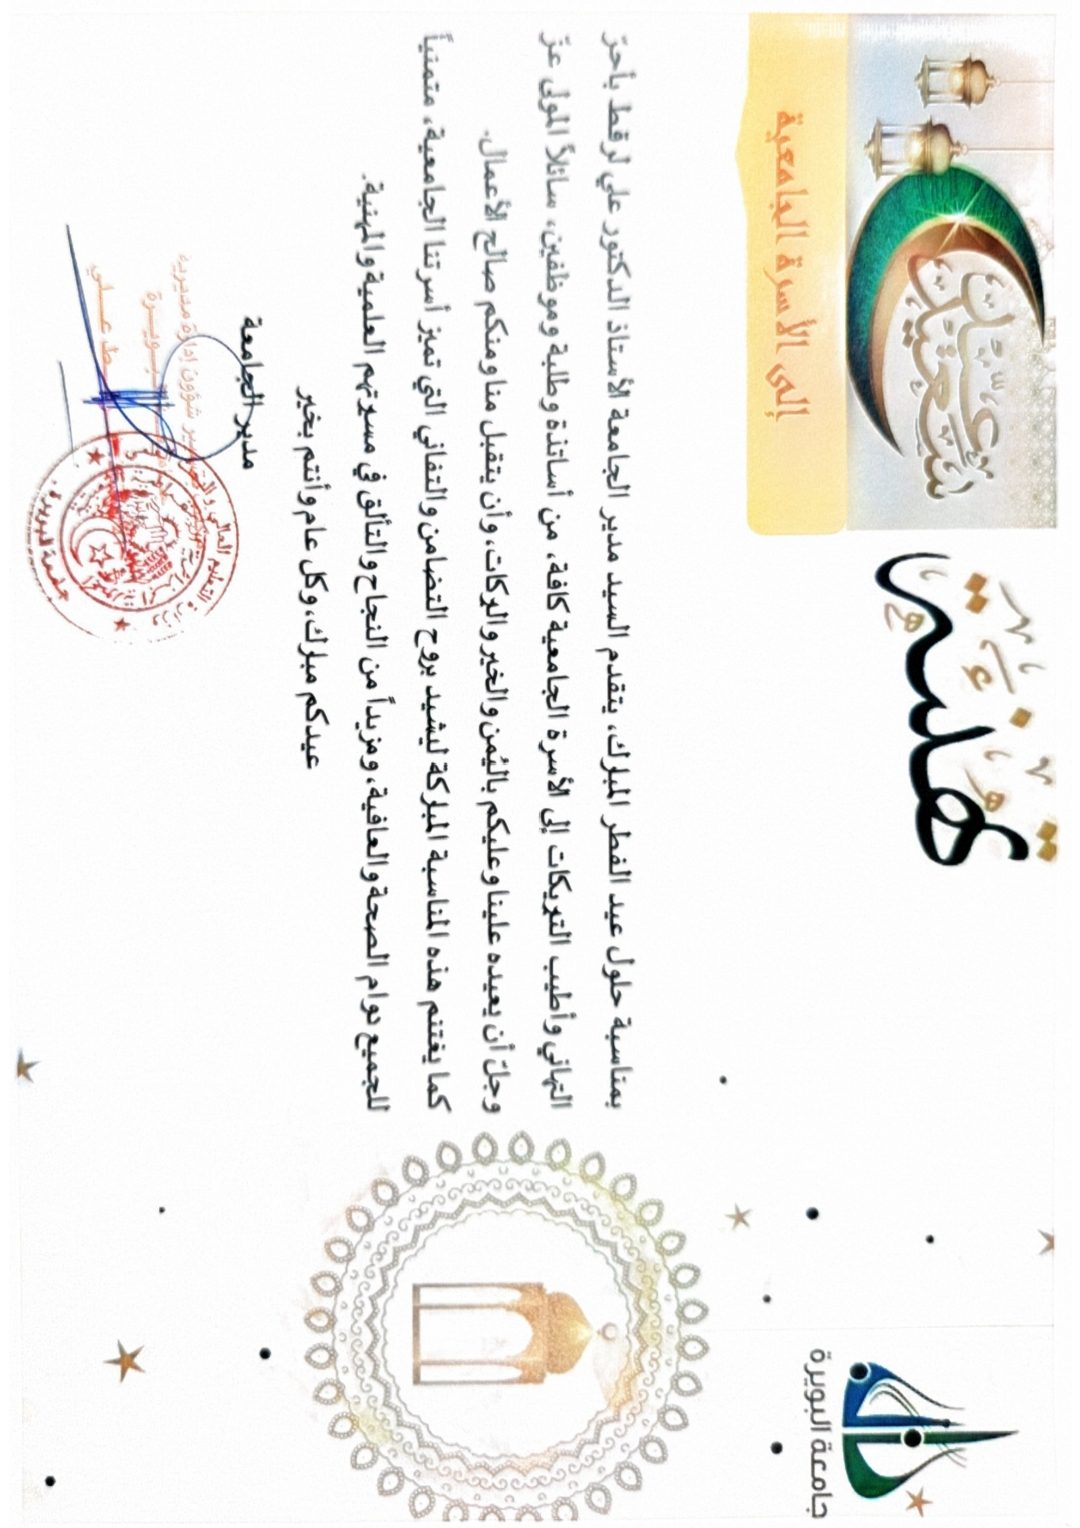 جامعة البويرة
تهنئة
عيد سعيد
إلى الأسرة الجامعية
بمناسبة حلول عيد الفطر المبارك، يتقدم السيد مدير الجامعة الأستاذ الدكتور علي لرقط بأحرّ
التهاني وأطيب التبريكات إلى الأسرة الجامعية كافة، من أساتذة وطلبة وموظفين، سائلاً المولى عزّ
وجلّ أن يعيده علينا وعليكم باليُمن والخير والبركات، وأن يتقبل منا ومنكم صالح الأعمال.
كما يغتنم هذه المناسبة المباركة ليشيد بروح التضامن والتفاني التي تميز أسرتنا الجامعية، متمنياً
للجميع دوام الصحة والعافية، ومزيداً من النجاح والتألق في مسيرتهم العلمية والمهنية.
عيدكم مبارك، وكل عام وأنتم بخير
مدير الجامعة
شؤون إدارة مديرية